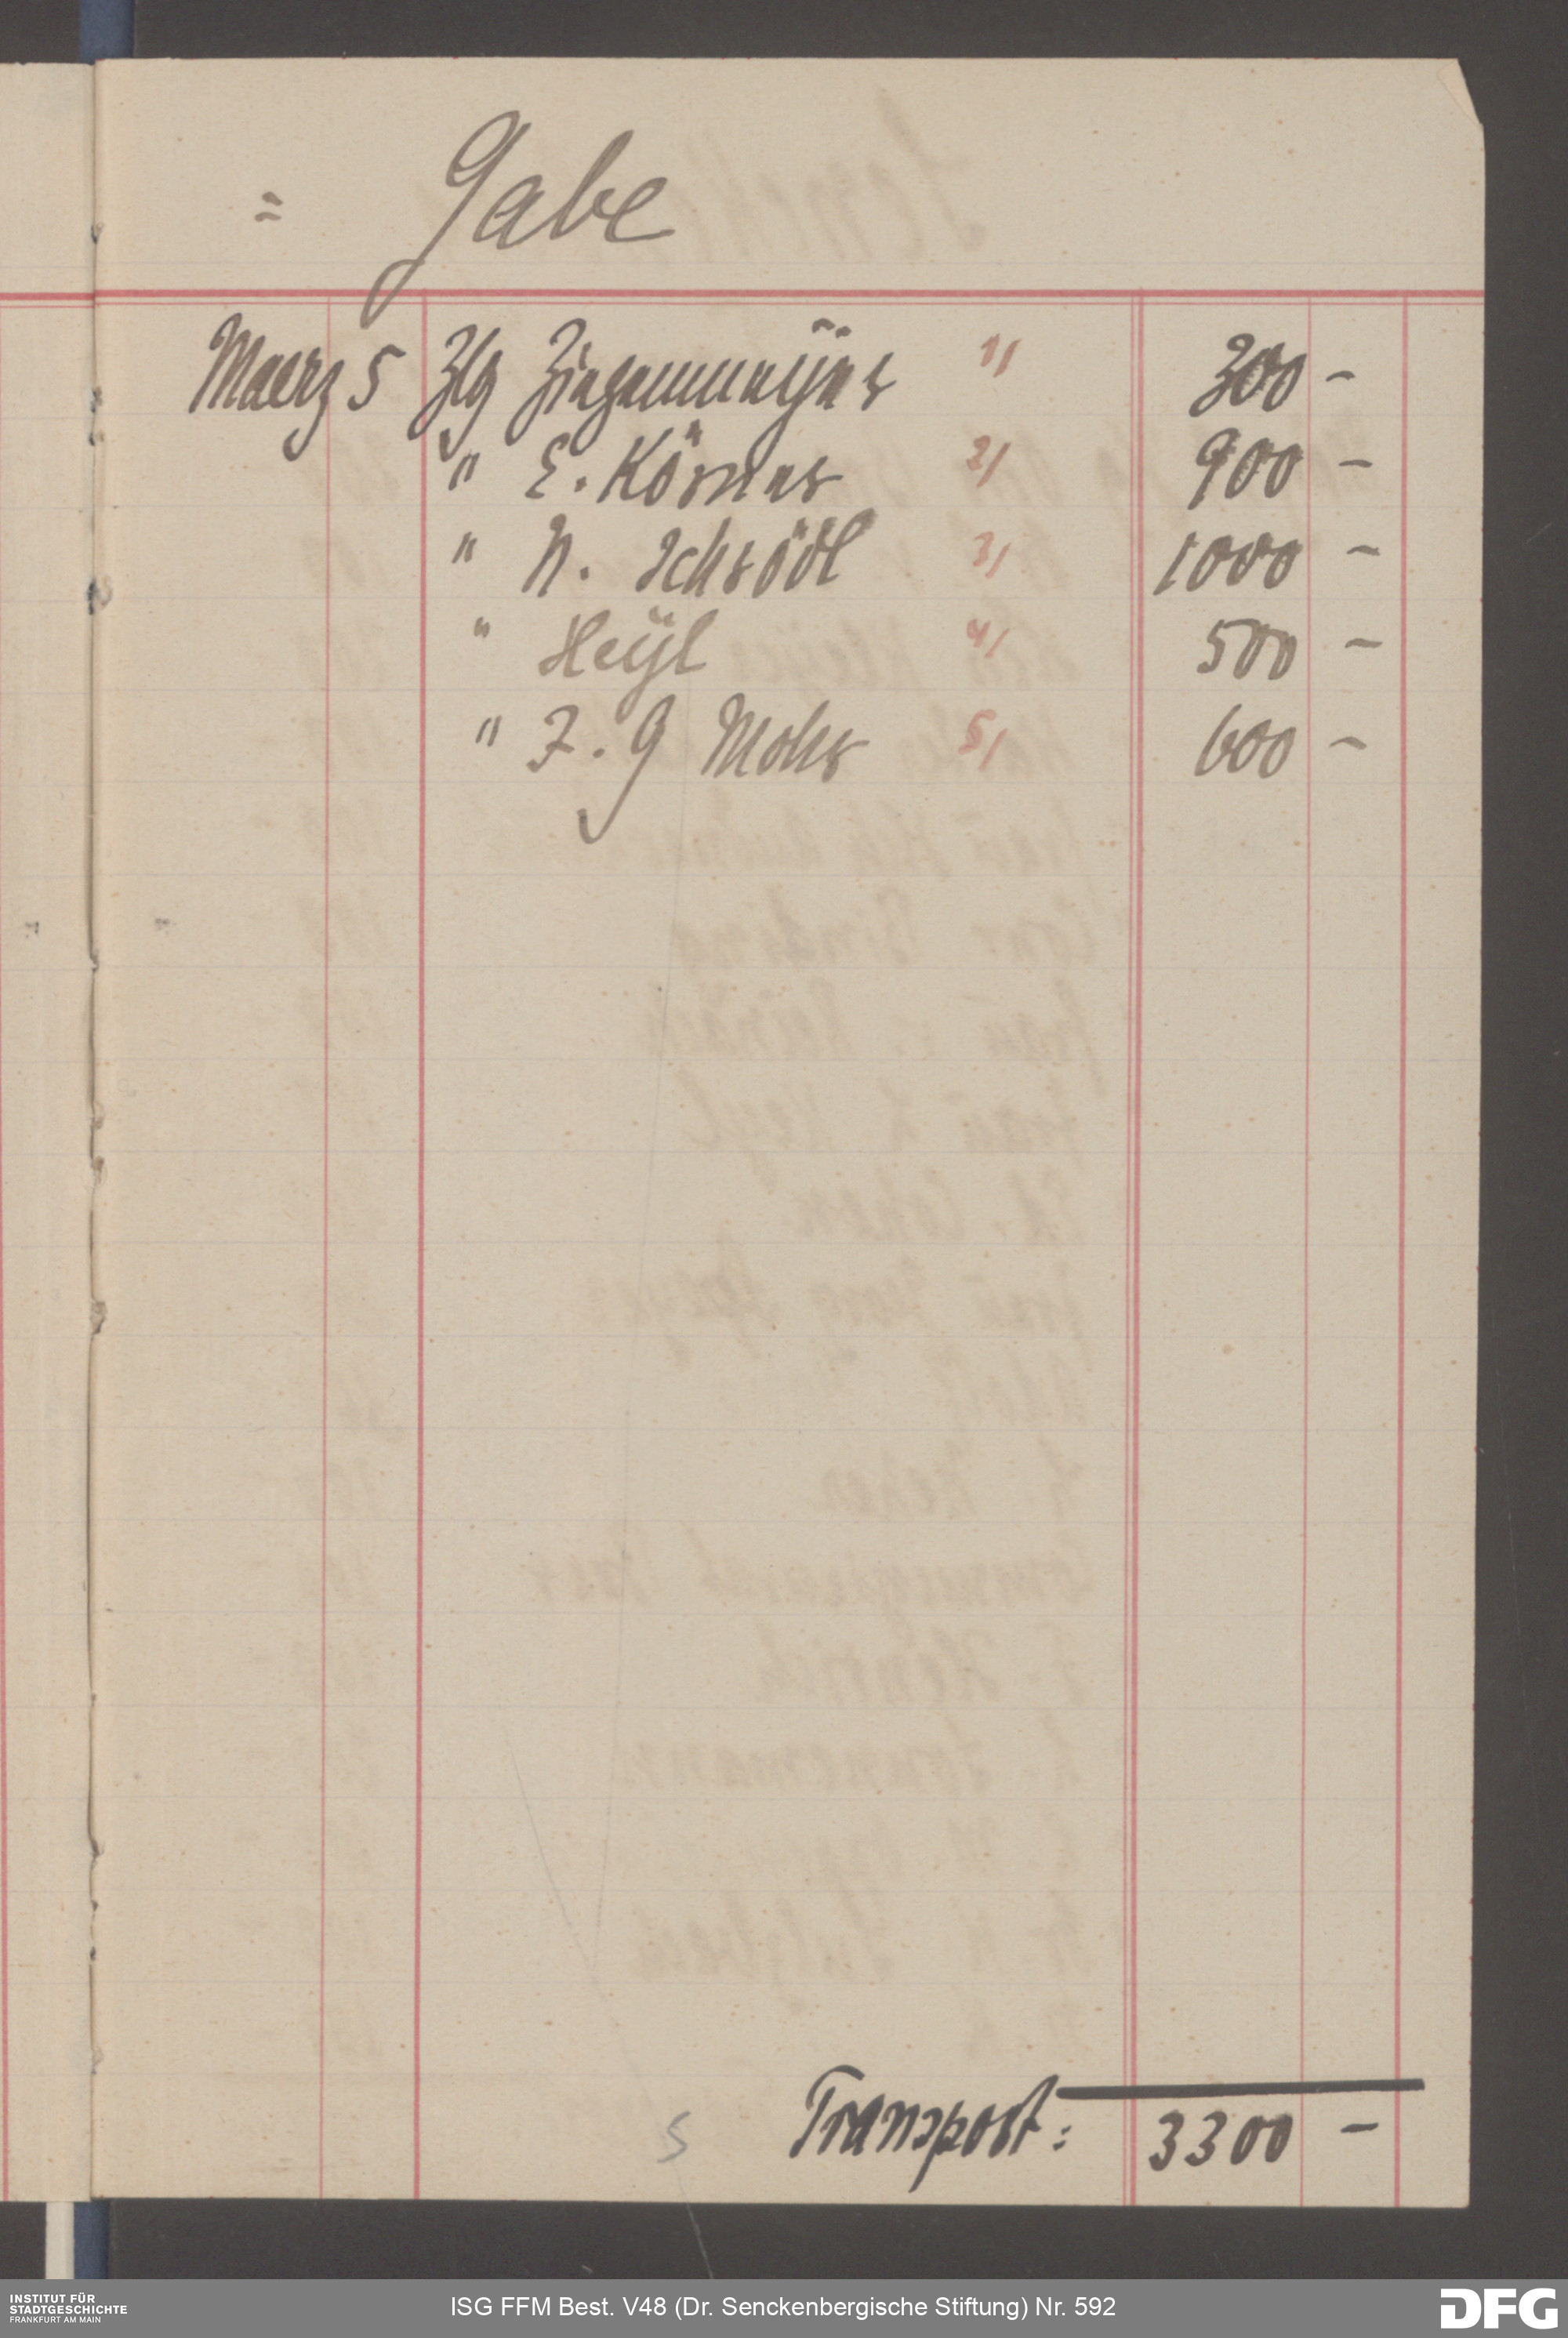 = Gabe
Maerz 5 Zlg Ziegenmeÿer 1/ 300 -
" E. Körner 2/ 900 -
" N. Schrödl 3/ 1000 -
" Heÿl 4/ 500 -
" F. G Mohr 5/ 600 -
5 Transport: 3300 -
INSTITUT FÜR
STADTGESCHICHTE
FRANKFURT AM MAIN
ISG FFM Best. V48 (Dr. Senckenbergische Stiftung) Nr. 592
DFG